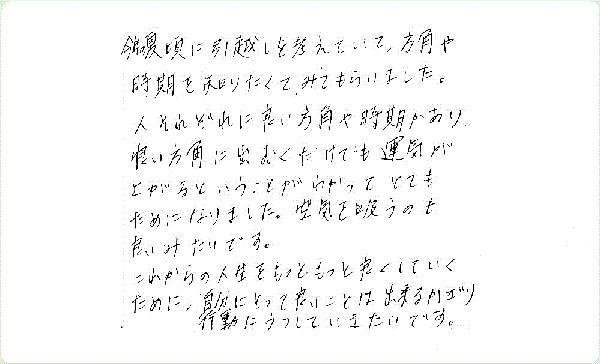 今夏頃に引越しを考えていて、方角や
時期を知りたくてみてもらいました。
人それぞれに良い方角や時期があり
良い方角に出むくだけでも運気が
上がるということがわかってとても
ためになりました。空気を吸うのも
良いみたいです。
これからの人生をもっともっと良くしていく
ために、自分にとって良いことは出来るかぎり
行動にうつしていきたいです。